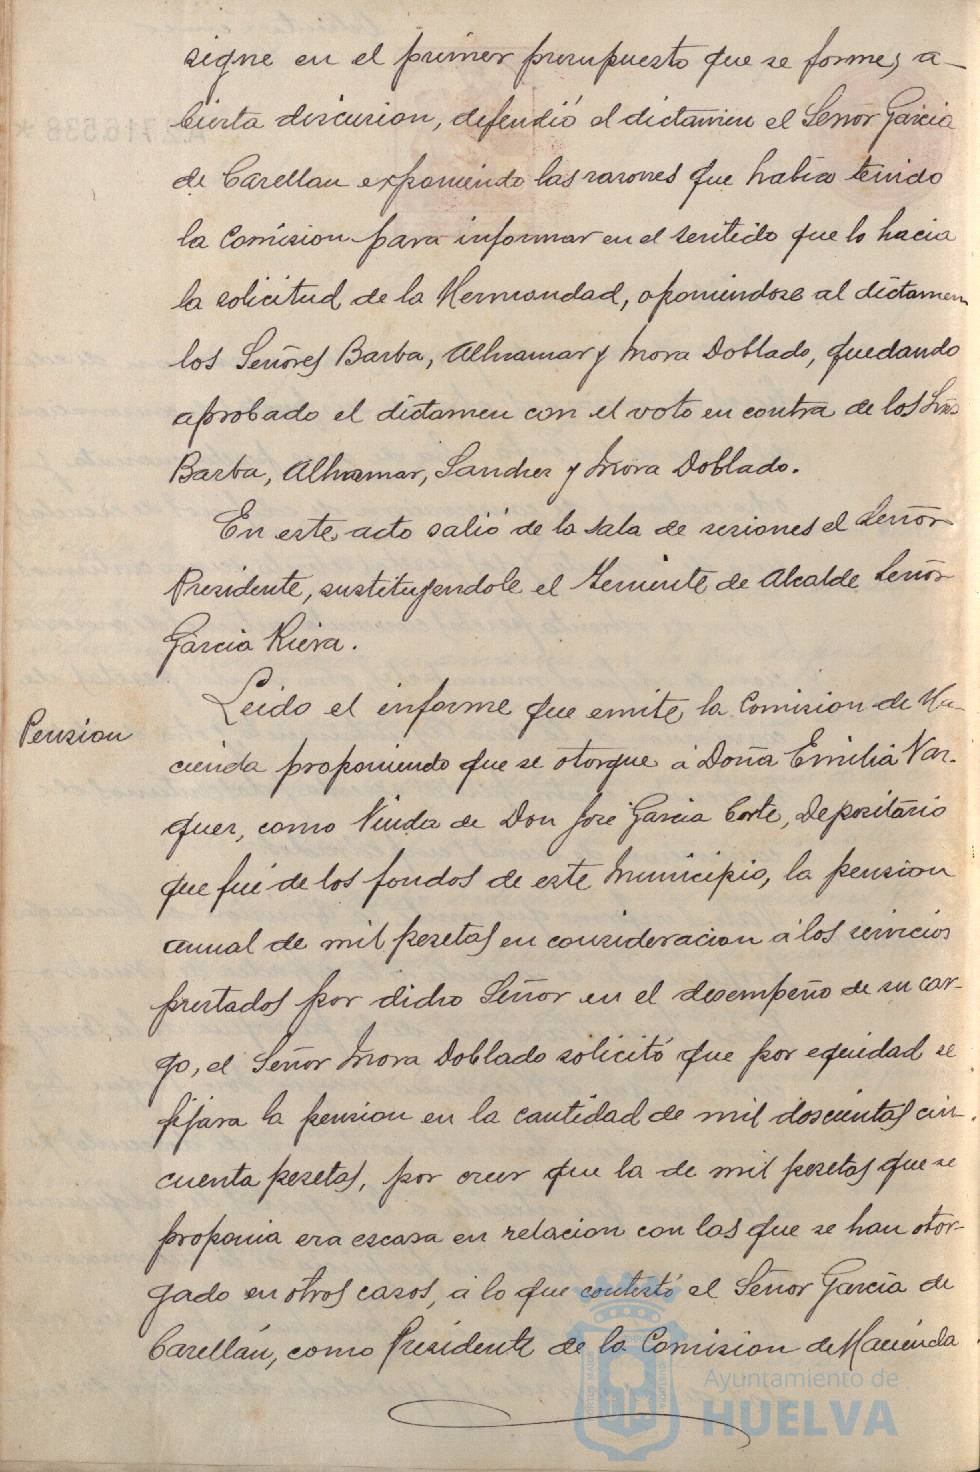 signe en el primer presupuesto que se forme, a-
bierta discusion, defendió el dictamen el Señor Garcia
de Carellan exponiendo las razones que habia tenido
la Comision para informar en el sentido que lo hacia
la solicitud de la Hermandad, oponiendose al dictamen
los Señores Barba, Alhramar y Mora Doblado, quedando
aprobado el dictamen con el voto en contra de los Sres
Barba, Alhramar, Sanchez y Mora Doblado.
En este acto salió de la sala de sesiones el Señor
Presidente, sustituyendole el Teniente de Alcalde Señor
Garcia Riera.
Pension
Leido el informe que emite la Comision de Ha-
cienda proponiendo que se otorgue á Doña Emilia Vaz-
quez, como Viuda de Don José Garcia Corte, Depositario
que fué de los fondos de este Municipio, la pension
anual de mil pesetas en consideracion á los servicios
prestados por dicho Señor en el desempeño de su car-
go, el Señor Mora Doblado solicitó que por equidad se
fijara la pension en la cantidad de mil doscientas cin-
cuenta pesetas, por creer que la de mil pesetas que se
proponia era escasa en relacion con las que se han otor-
gado en otros casos, á lo que contestó el Señor García de
Carellán, como Presidente de la Comision de Hacienda
Ayuntamiento de
HUELVA